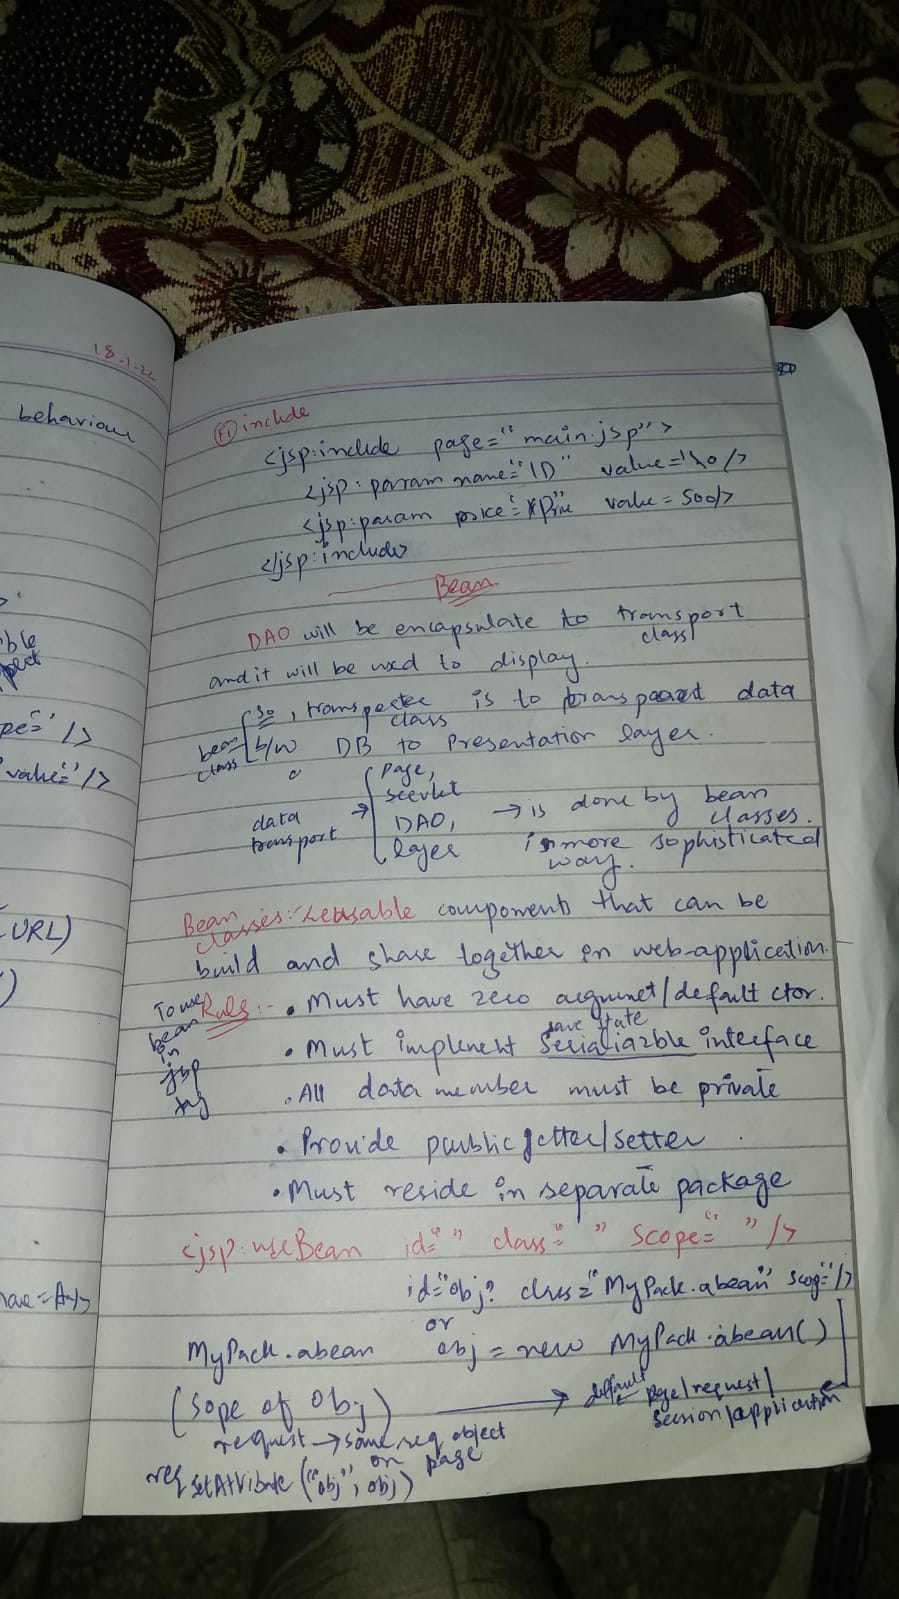 18-1-22
behaviour
URL)
value=' />
include
<jsp:include page="main.jsp">
<jsp:param name="ID" value= />
<jsp:param value = 500/>
</jsp:include>
Bean
DAO will be encapsulate to transport class
and it will be used to display.
bean class
So, class is to data
b/w DB to Presentation layer.
data transport
Page,
servlet
DAO,
layer
→ is done by bean classes.
in more sophisticated way.
Bean classes:- reusable components that can be
build and share together in web-application.
To use bean in jsp tag
Rules:- • Must have zero argumnet/default ctor.
save state
• Must implement interface
• All data member must be private
• Provide getter/setter
• Must reside in separate package
<jsp:useBean id=" " class=" " scope=" "/>
id="obj" class="MyPack.abean" />
or
MyPack.abean obj = new MyPack.abean()
(Sope of Obj) → default page/request/
session/application
request → same req object
on page
req setAttribute("obj", obj)